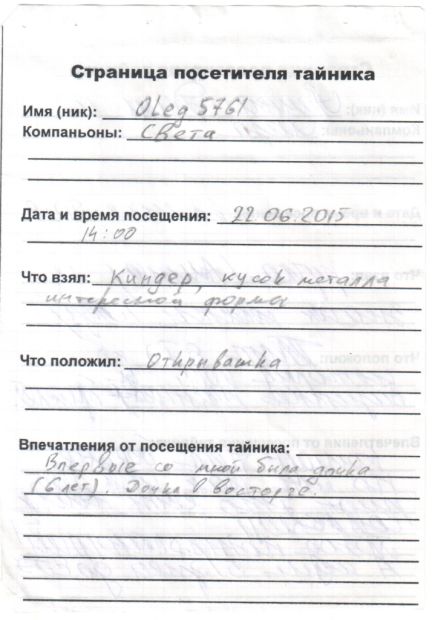 Страница посетителя тайника
Имя (ник): OLeg 5761
Компаньоны: Света
Дата и время посещения: 22.06.2015
14:00
Что взял: Киндер, кусок металла
интересной формы
Что положил: Открывашка
Впечатления от посещения тайника:
Впервые со мной была дочка
(6 лет). Дочка в восторге.